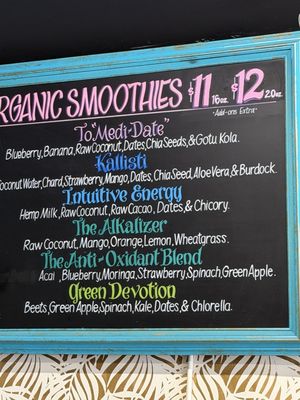 RGANIC SMOOTHIES $11 16oz. $12 20oz.
*Add-ons Extra*
To "Medi-Date"
Blueberry, Banana, Raw Coconut, Dates, Chia Seeds, & Gotu Kola.
Kallisti
Coconut Water, Chard, Strawberry, Mango, Dates, Chia Seed, Aloe Vera, & Burdock.
Intuitive Energy
Hemp Milk, Raw Coconut, Raw Cacao, Dates, & Chicory.
The Alkalizer
Raw Coconut, Mango, Orange, Lemon, Wheatgrass.
The Anti-Oxidant Blend
Acai, Blueberry, Moringa, Strawberry, Spinach, Green Apple.
Green Devotion
Beets, Green Apple, Spinach, Kale, Dates, & Chlorella.